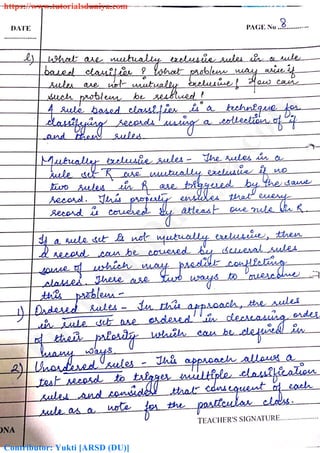 https://www.tutorialsduniya.com
DATE
PAGE No 8
l) What are mutually exclusive rules in a rule
based classifier? What problem may arise if
rules are not mutually exclusive? How can
such problem be resolved?
A rule based classifier is a technique for
classifying records using a collection of if
and then rules.
Mutually exclusive rules - The rules in a
rule set R are mutually exclusive if no
two rules in R are triggered by the same
record. This property ensures that every
record is covered by atleast one rule in R.
If a rule set is not mutually exclusive, then
a record can be covered by several rules
some of which may predict conflicting
classes. There are two ways to overcome
this problem -
1) Ordered rules - In this approach, the rules
in rule set are ordered in decreasing order
of their priority which can be defined in
many ways.
2) Unordered rules - This approach allows a
test record to trigger multiple classification
rules and consider that consequent of each
rule as a vote for the particular class.
TEACHER'S SIGNATURE
DNA
Contributor: Yukti [ARSD (DU)]